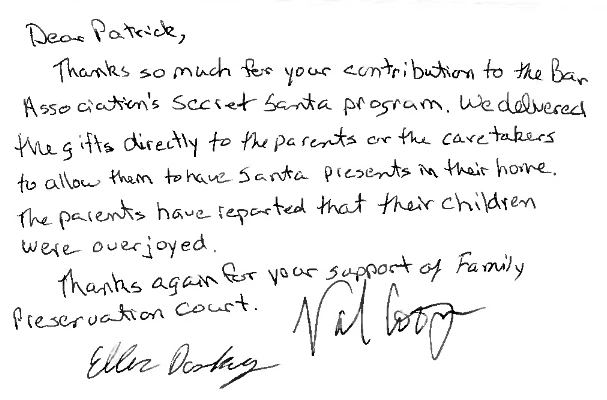 Dear Patrick,
Thanks so much for your contribution to the Bar
Association's Secret Santa program. We delivered
the gifts directly to the parents or the caretakers
to allow them to have Santa presents in their home.
The parents have reported that their children
were overjoyed.
Thanks again for your support of Family
Preservation Court.
Val
Ellen